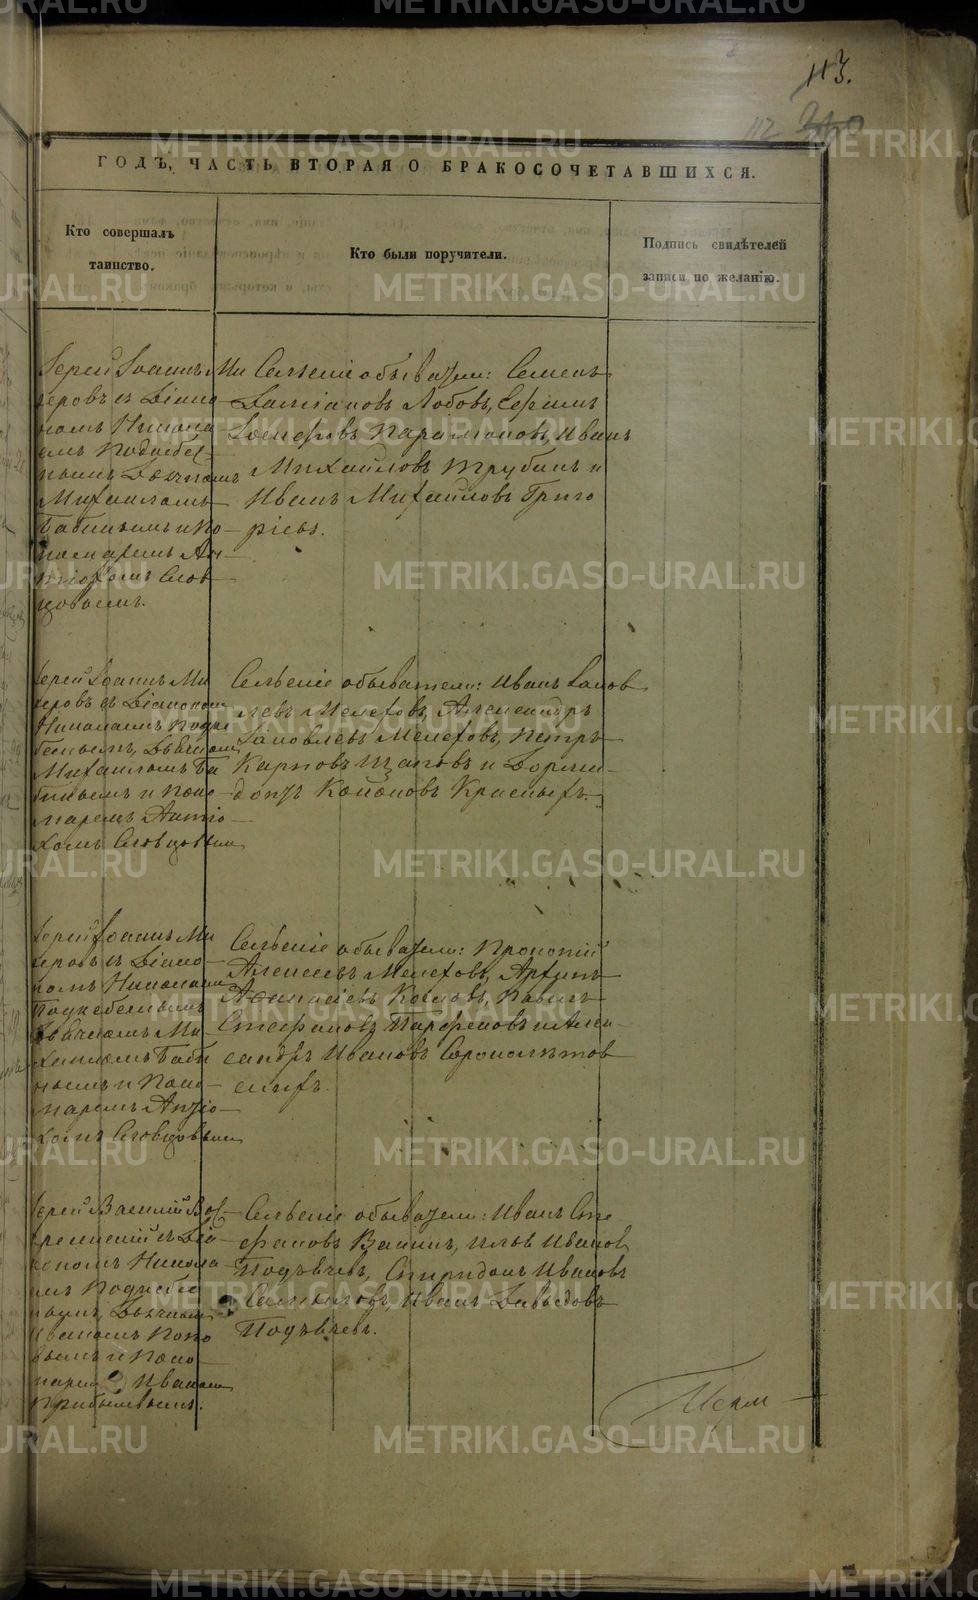 113.
112
ГОДЪ, ЧАСТЬ ВТОРАЯ О БРАКОСОЧЕТАВШИХСЯ.
Кто совершалъ
таинство.
Кто были поручители.
Подпись свидѣтелей
записи по желанію.
Іерей Іоаннъ Ми
перовъ съ Діако
номъ Никола
емъ Подкобел
нымъ Дьячкомъ
Михаиломъ
Бабинымъ и По
номаремъ Ан
тіохомъ Слов
цовымъ.
Сельскіе обыватели: Семенъ
Даміановъ Лобовъ, Ефимъ
Іосифовъ Парамоновъ, Иванъ
Михайловъ Трубинъ и
Иванъ Михайловъ Григо
рьевъ.
Іерей Іоаннъ Ми
перовъ съ Діакономъ
Николаемъ Подко
бельнымъ, Дьячкомъ
Михаиломъ Ба
бинымъ и Поно
маремъ Антіо
хомъ Словцовымъ
Сельскіе обыватели: Иванъ Іаков
левъ Мелеховъ, Александръ
Іаковлевъ Мелеховъ, Петръ
Карповъ Щаповъ и Дорми
донтъ Кононовъ Красныхъ.
Іерей Іоаннъ Ми
перовъ съ Діако
номъ Николаемъ
Подкобельнымъ
Дьячкомъ Ми
хаиломъ Баби
нымъ и Поно
маремъ Антіо
хомъ Словцовымъ
Сельскіе обыватели: Прокопій
Алексеевъ Мелеховъ, Артемъ
Афанасіевъ Козловъ, Павелъ
Стефановъ Парфеновъ и Алек
сандръ Ивановъ Сорокалетов
скихъ.
Іерей Василій Воз
съ Діа
кономъ Никола
емъ Подкобель
нымъ, Дьячкомъ
Иваномъ Попо
вымъ и Поно
маремъ Иваномъ
Прибылевымъ.
Сельскіе обыватели: Иванъ Сте
фановъ Ванинъ, Илья Ивановъ
Подъячевъ, Спиридонъ Ивановъ
Самыловъ, Иванъ Давыдовъ
Подъячевъ.
METRIKI.GASO-URAL.RU